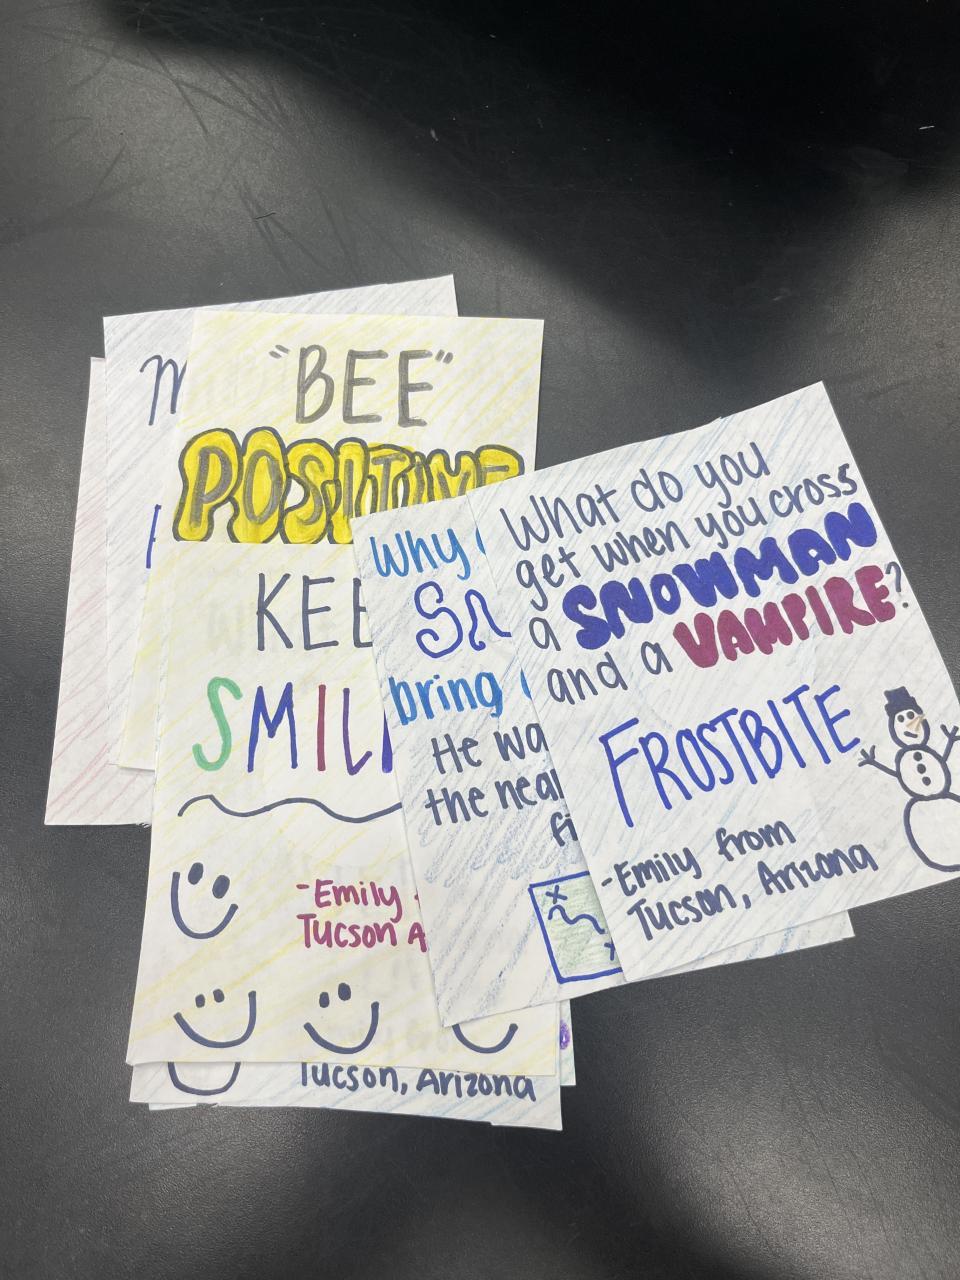 "BEE"
POSITIVE
KEE
SMIL
-Emily
Tucson A
Tucson, Arizona
Why
bring
He wa
the near
fi
What do you
get when you cross
a SNOWMAN
and a VAMPIRE?
FROSTBITE
-Emily from
Tucson, Arizona